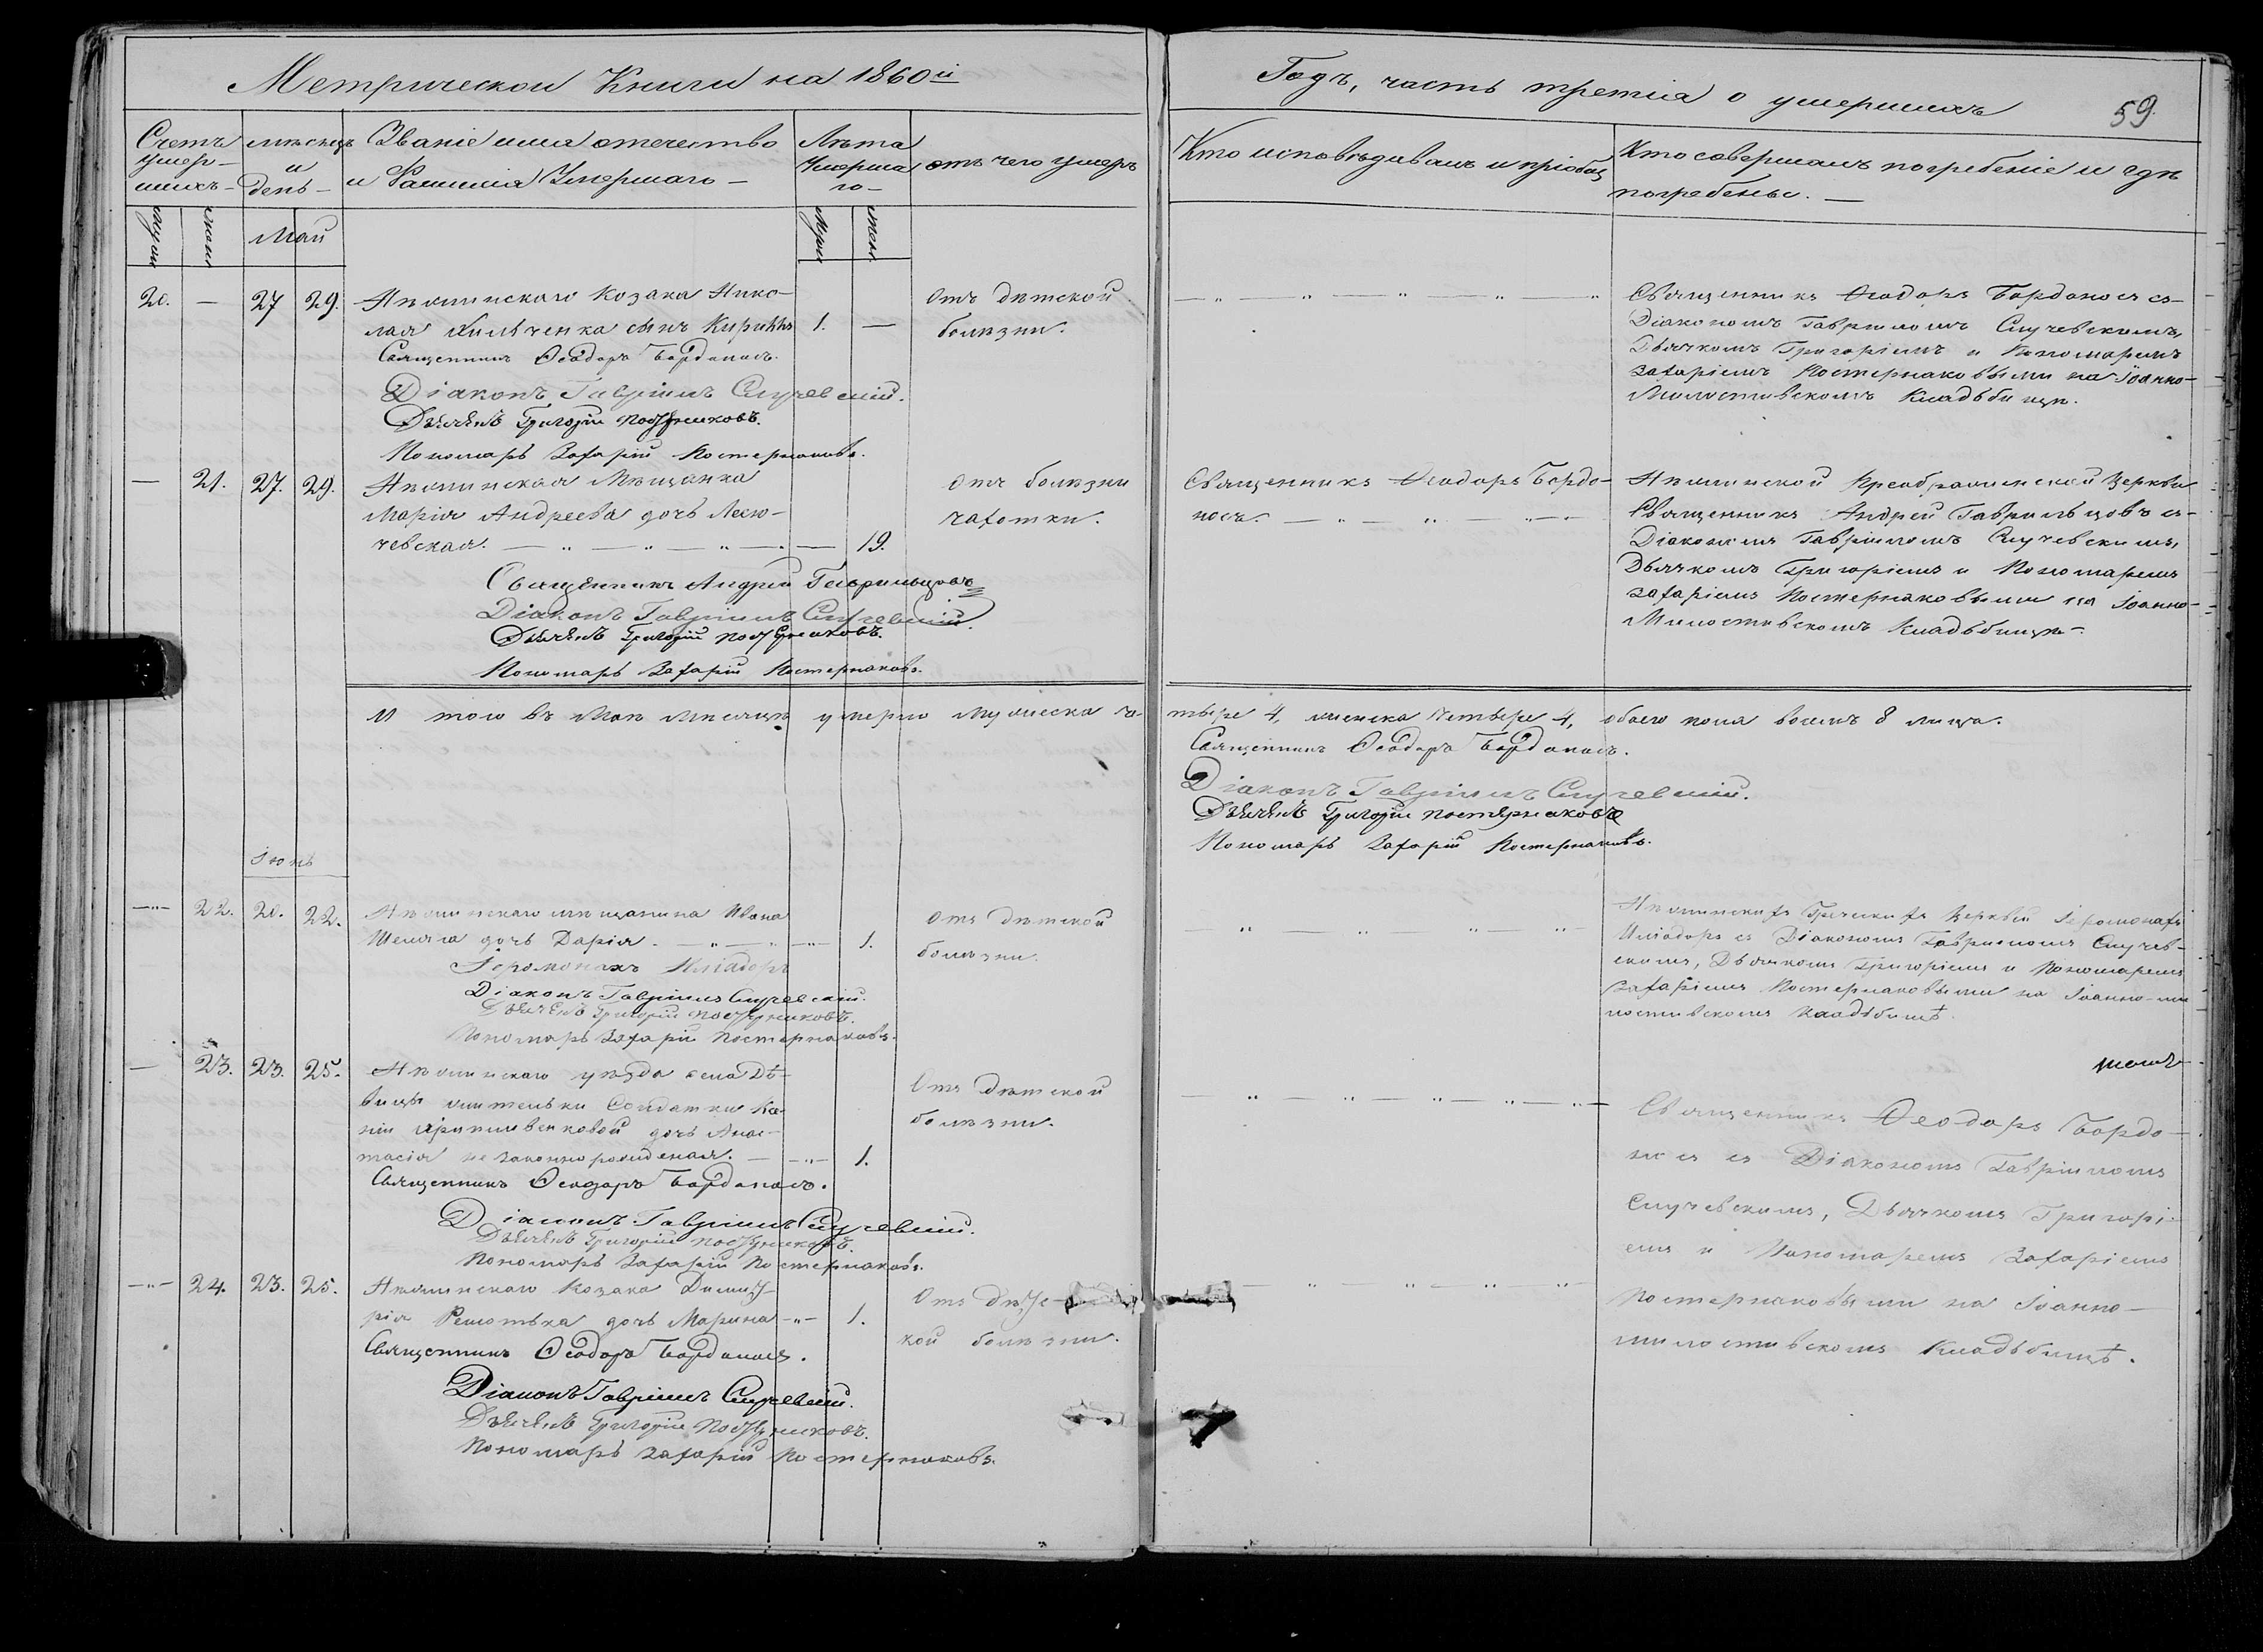 Метрической Книги на 1860й
Годъ, часть третія о умершихъ
59.
Счетъ умер-
шихъ-
мѣсяцъ
и
день-
Званіе имя отечество
и Фамилія Умершаго-
Лѣта
Умерша
го-
отъ чего умеръ
Кто исповѣдивалъ и пріобщ
Кто совершалъ погребеніе и гдѣ
погребены.-
Май
20. - 27 29.
Нѣжинскаго Козака Нико-
лая сынъ Кириллъ 1. -
Священникъ Ѳеодоръ Бордоносъ.
Діаконъ Гавріилъ Случевскій.
Дьячекъ Григорій Постернаковъ.
Пономарь Захарій Постернаковъ.
Отъ дѣтской
болѣзни.
Священникъ Ѳеодоръ Бордоносъ съ-
Діакономъ Гавріиломъ Случевскимъ,
Дьячкомъ Григоріемъ и Пономаремъ
Захаріемъ Постернаковыми на Іоанно-
Милостивскомъ Кладьбищѣ.
- 21. 27. 29.
Нѣжинская Мѣщанка
Марія Андреева дочь
чевская. 19.
Священникъ Андрей Гаврильцовъ
Діаконъ Гавріилъ Случевскій.
Дьячекъ Григорій Постернаковъ.
Пономарь Захарій Постернаковъ.
Отъ болѣзни
чахотки.
Священникъ Ѳеодоръ Бордо-
носъ.
Нѣжинской Преображенской Церкви
Священникъ Андрей Гаврильцовъ съ-
Діакономъ Гавріиломъ Случевскимъ,
Дьячкомъ Григоріемъ и Пономаремъ
Захаріемъ Постернаковыми на Іоанно-
Милостивскомъ Кладьбищѣ-.
И того въ Маѣ мѣсяцѣ умерло мужеска че-
тыре 4, женска четыре 4, обоего пола восемъ 8 лица.
Священникъ Ѳеодоръ Бордоносъ.
Діаконъ Гавріилъ Случевскій.
Дьячекъ Григорій Постернаковъ
Пономарь Захарій Постернаковъ.
Іюнь
22. 20. 22.
Нѣжинскаго мѣщанина Ивана
дочь Дарія. 1.
Іеромонахъ Иліадоръ
Діаконъ Гавріилъ Случевскій.
Дьячекъ Григорій Постернаковъ.
Пономарь Захарій Постернаковъ.
Отъ дѣтской
болѣзни.
Нѣжинскихъ Греческихъ Церквей Іеромонахъ
Иліадоръ съ Діакономъ Гавріиломъ Случев-
скимъ, Дьячкомъ Григоріемъ и Пономаремъ
Захаріемъ Постернаковыми на Іоанно-ми
лостивскомъ Кладьбищѣ.
- 23. 23. 25.
Нѣжинскаго уѣзда села Дѣ-
вицы жительки Солдатки Ксе-
ніи дочь Анас-
тасія не законно рожденая. - 1.
Священникъ Ѳеодоръ Бордоносъ.
Діаконъ Гавріилъ Случевскій.
Дьячекъ Григорій Постернаковъ.
Пономарь Захарій Постернаковъ.
Отъ дѣтской
болѣзни.
Священникъ Ѳеодоръ Бордо-
носъ съ Діакономъ Гавріиломъ
Случевскимъ, Дьячкомъ Григорі-
емъ и Пономаремъ Захаріемъ
Постернаковыми на Іоанно-
милостивскомъ Кладьбищѣ.
24. 23. 25.
Нѣжинскаго Козака Димит-
рія дочь Марина 1.
Священникъ Ѳеодоръ Бордоносъ.
Діаконъ Гавріилъ Случевскій.
Дьячекъ Григорій Постернаковъ.
Пономарь Захарій Постернаковъ.
Отъ дѣтс-
кой болѣзни.